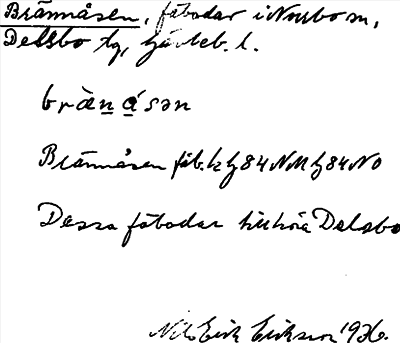 Brännåsen, fäbodar i Norrbo sn,
Delsbo tg, Gävleb. l.
brὰn ásən
Brännåsen fäb. k
Dessa fäbodar tillhöra Delsbo
Nils Erik Eriksson 1926.